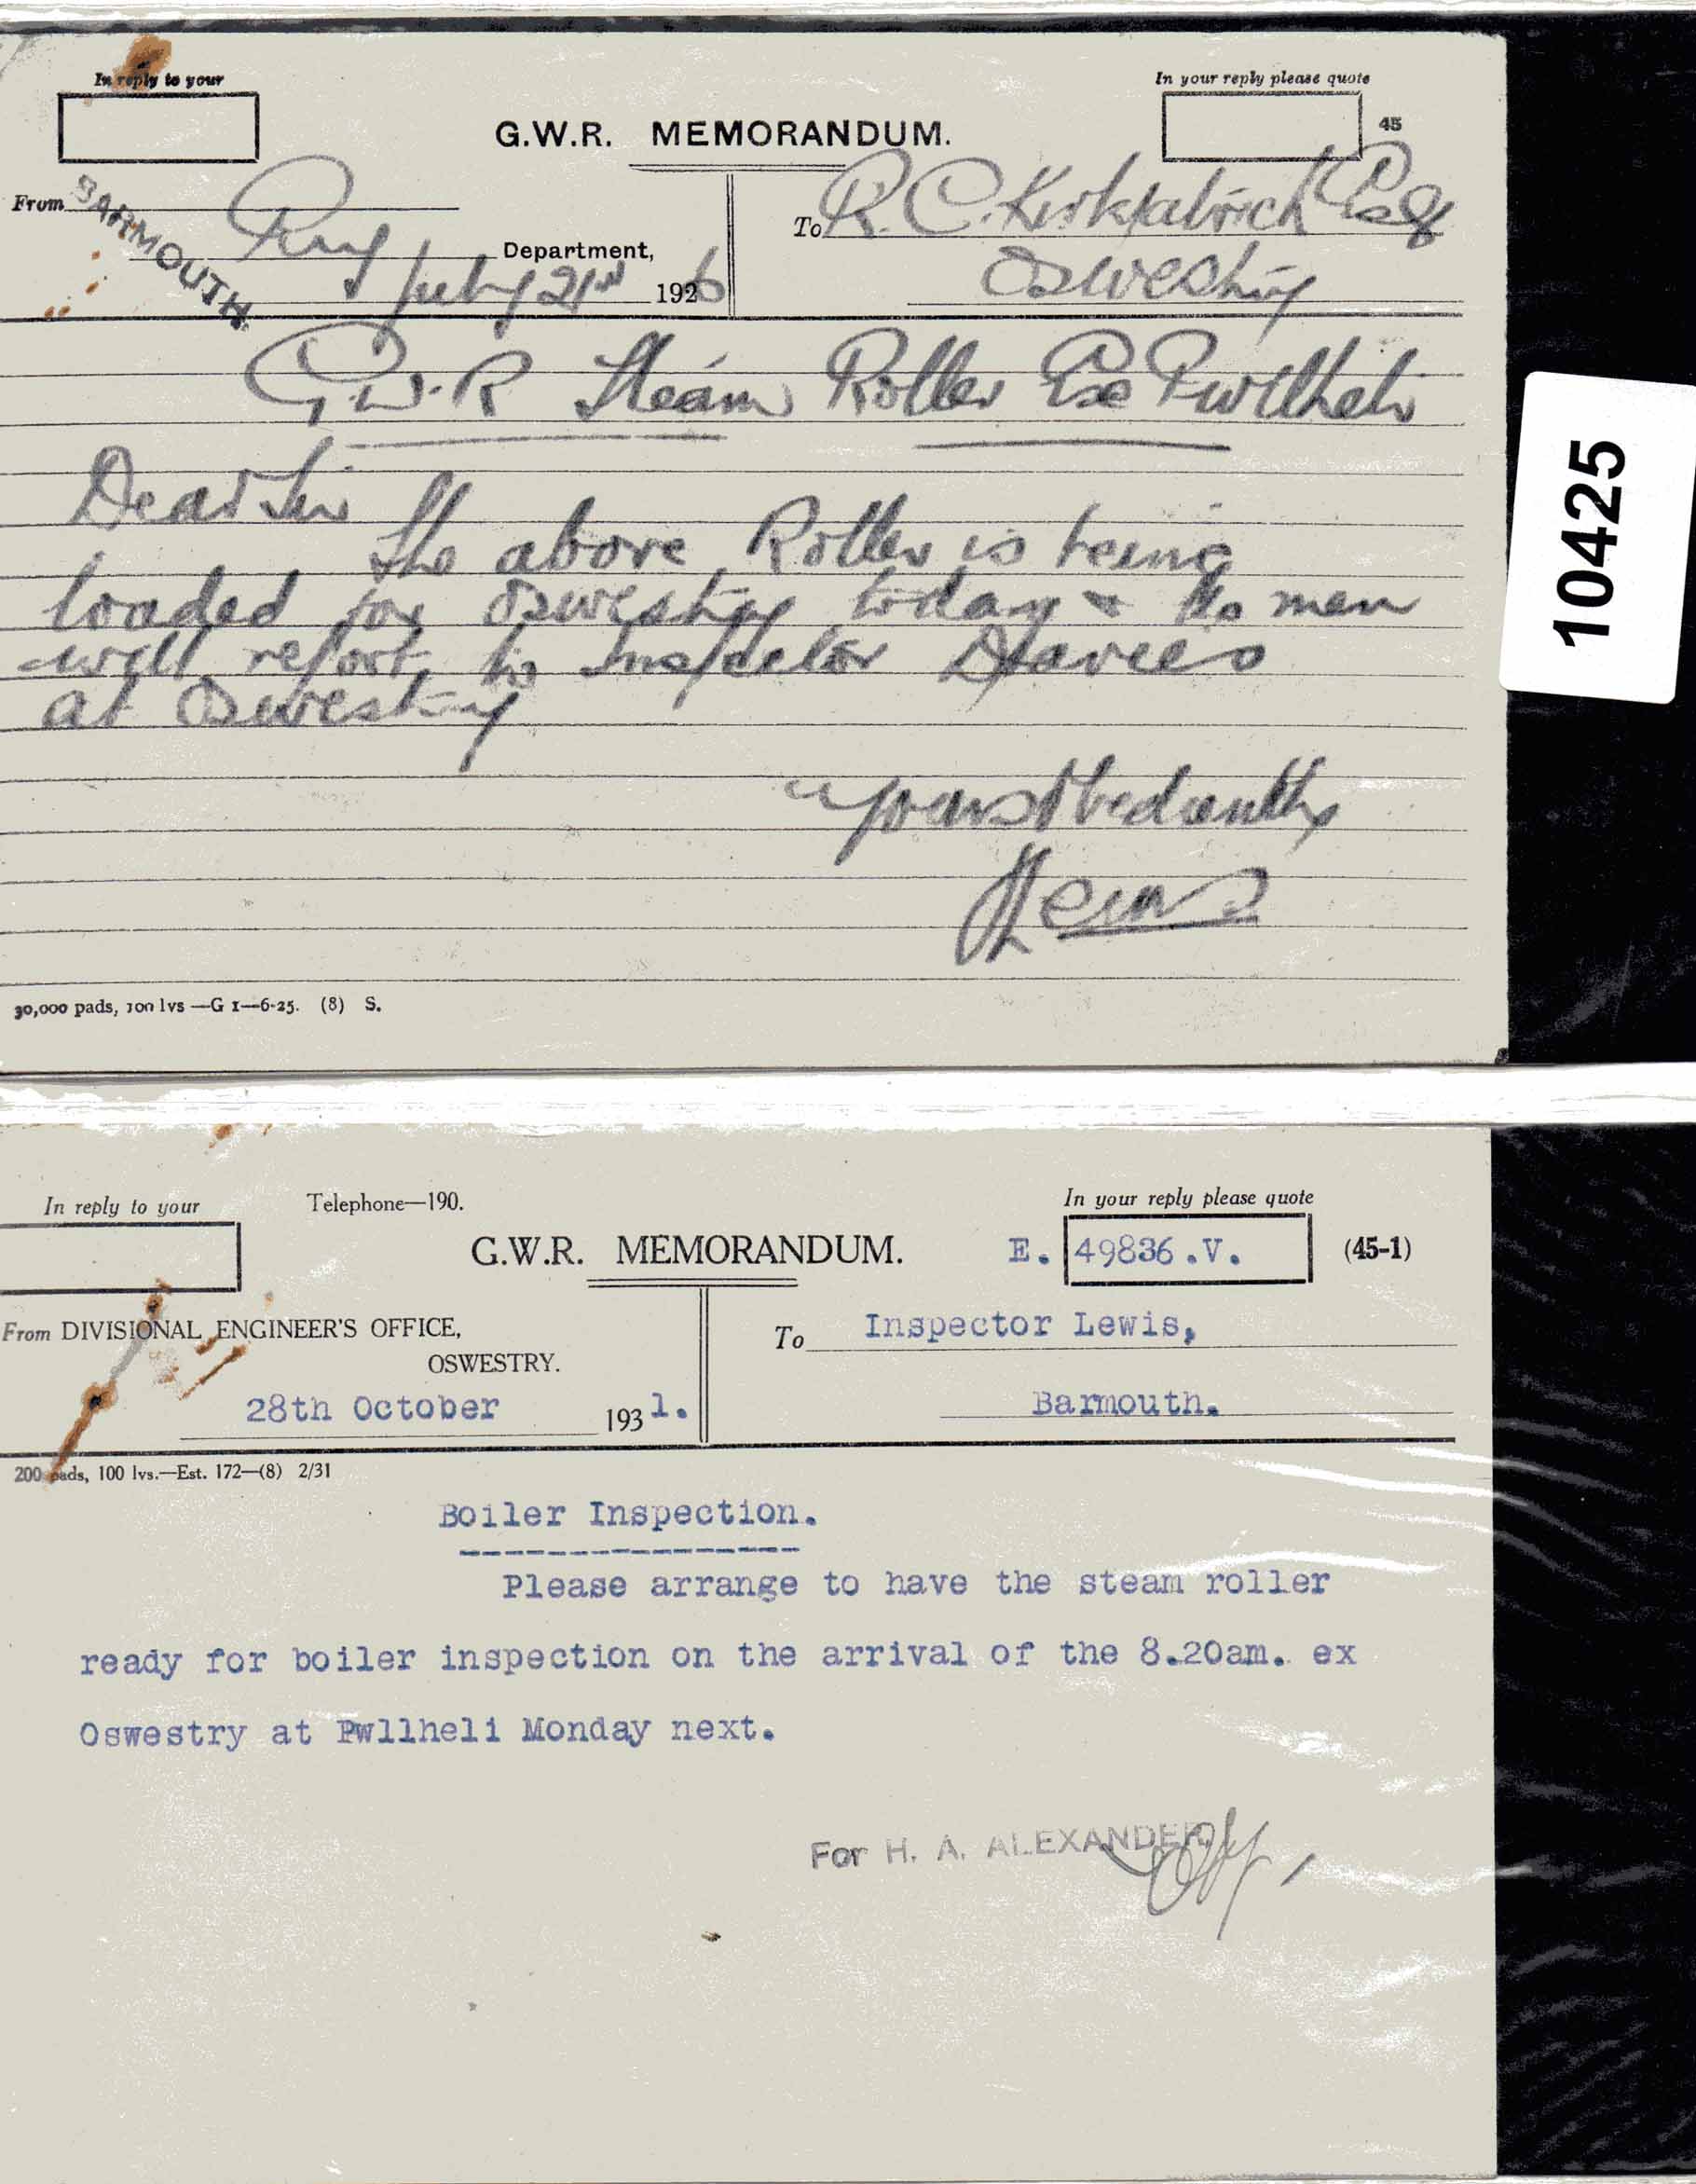 In reply to your
In your reply please quote
45
G.W.R. MEMORANDUM.
From BARMOUTH
To R. C. Kirkpatrick Esq
Department,
Oswestry
July 21st 1926
G.W.R Steam Roller Ex Pwllheli
Dear Sir
The above Roller is being
loaded for Oswestry today & the men
will report to Inspector Davies
at Oswestry
Yours Obediently
Lewis
30,000 pads, 100 lvs —G 1—6-25. (8) S.
10425
In reply to your
Telephone—190.
In your reply please quote
G.W.R. MEMORANDUM.
E. 49836.V.
(45-1)
From DIVISIONAL ENGINEER'S OFFICE,
OSWESTRY.
To Inspector Lewis,
28th October 1931.
Barmouth.
200 pads, 100 lvs.—Est. 172—(8) 2/31
Boiler Inspection.
Please arrange to have the steam roller
ready for boiler inspection on the arrival of the 8.20am. ex
Oswestry at Pwllheli Monday next.
For H. A. ALEXANDER,